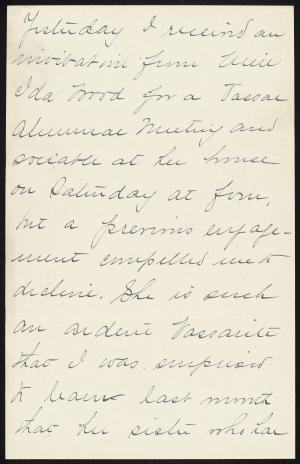 Yesterday I received an
invitation from Miss
Ida Wood for a Vassar
Alumnae Meeting and
sociable at her house
on Saturday at four,
but a previous engage-
ment compelled me to
decline. She is such
an ardent Vassarite
that I was surprised
to learn last month
that her sister who has